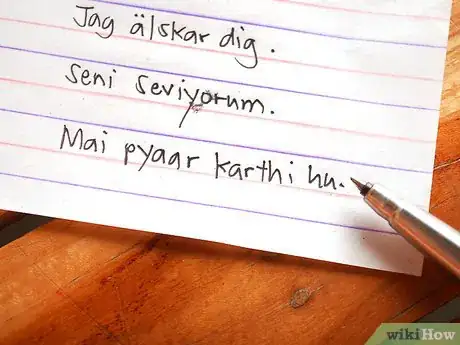 Jag älskar dig.
Seni seviyorum.
Mai pyaar karthi hu.
wikiHow